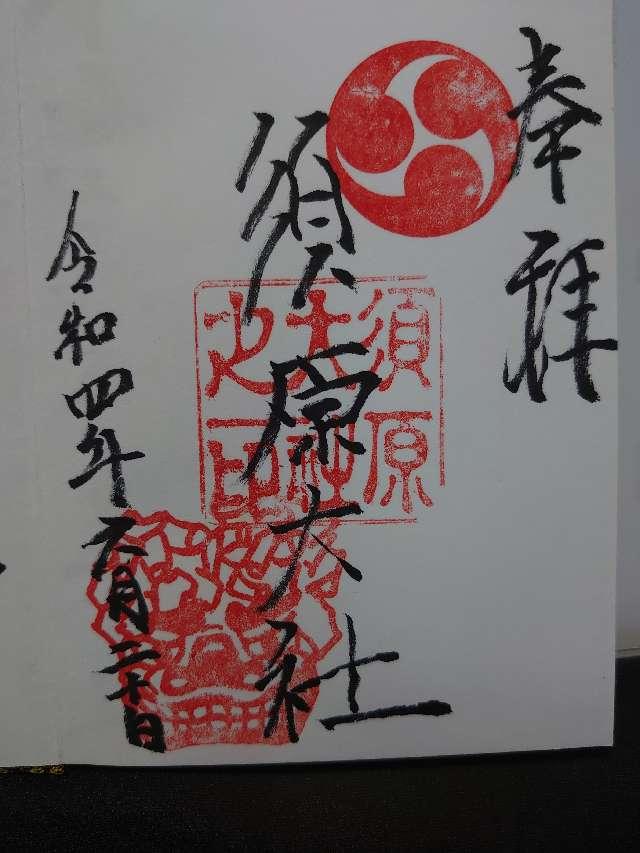 奉拝
須原大社
須原
大社
之印
令和四年六月二十日